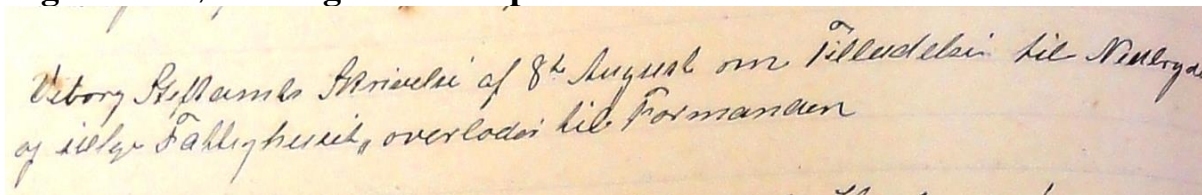 Viborg Stiftamts Skrivelse af 8de August om Tilladelse til Nedbryde
og sælge Fattighuset, overlodes til Formanden